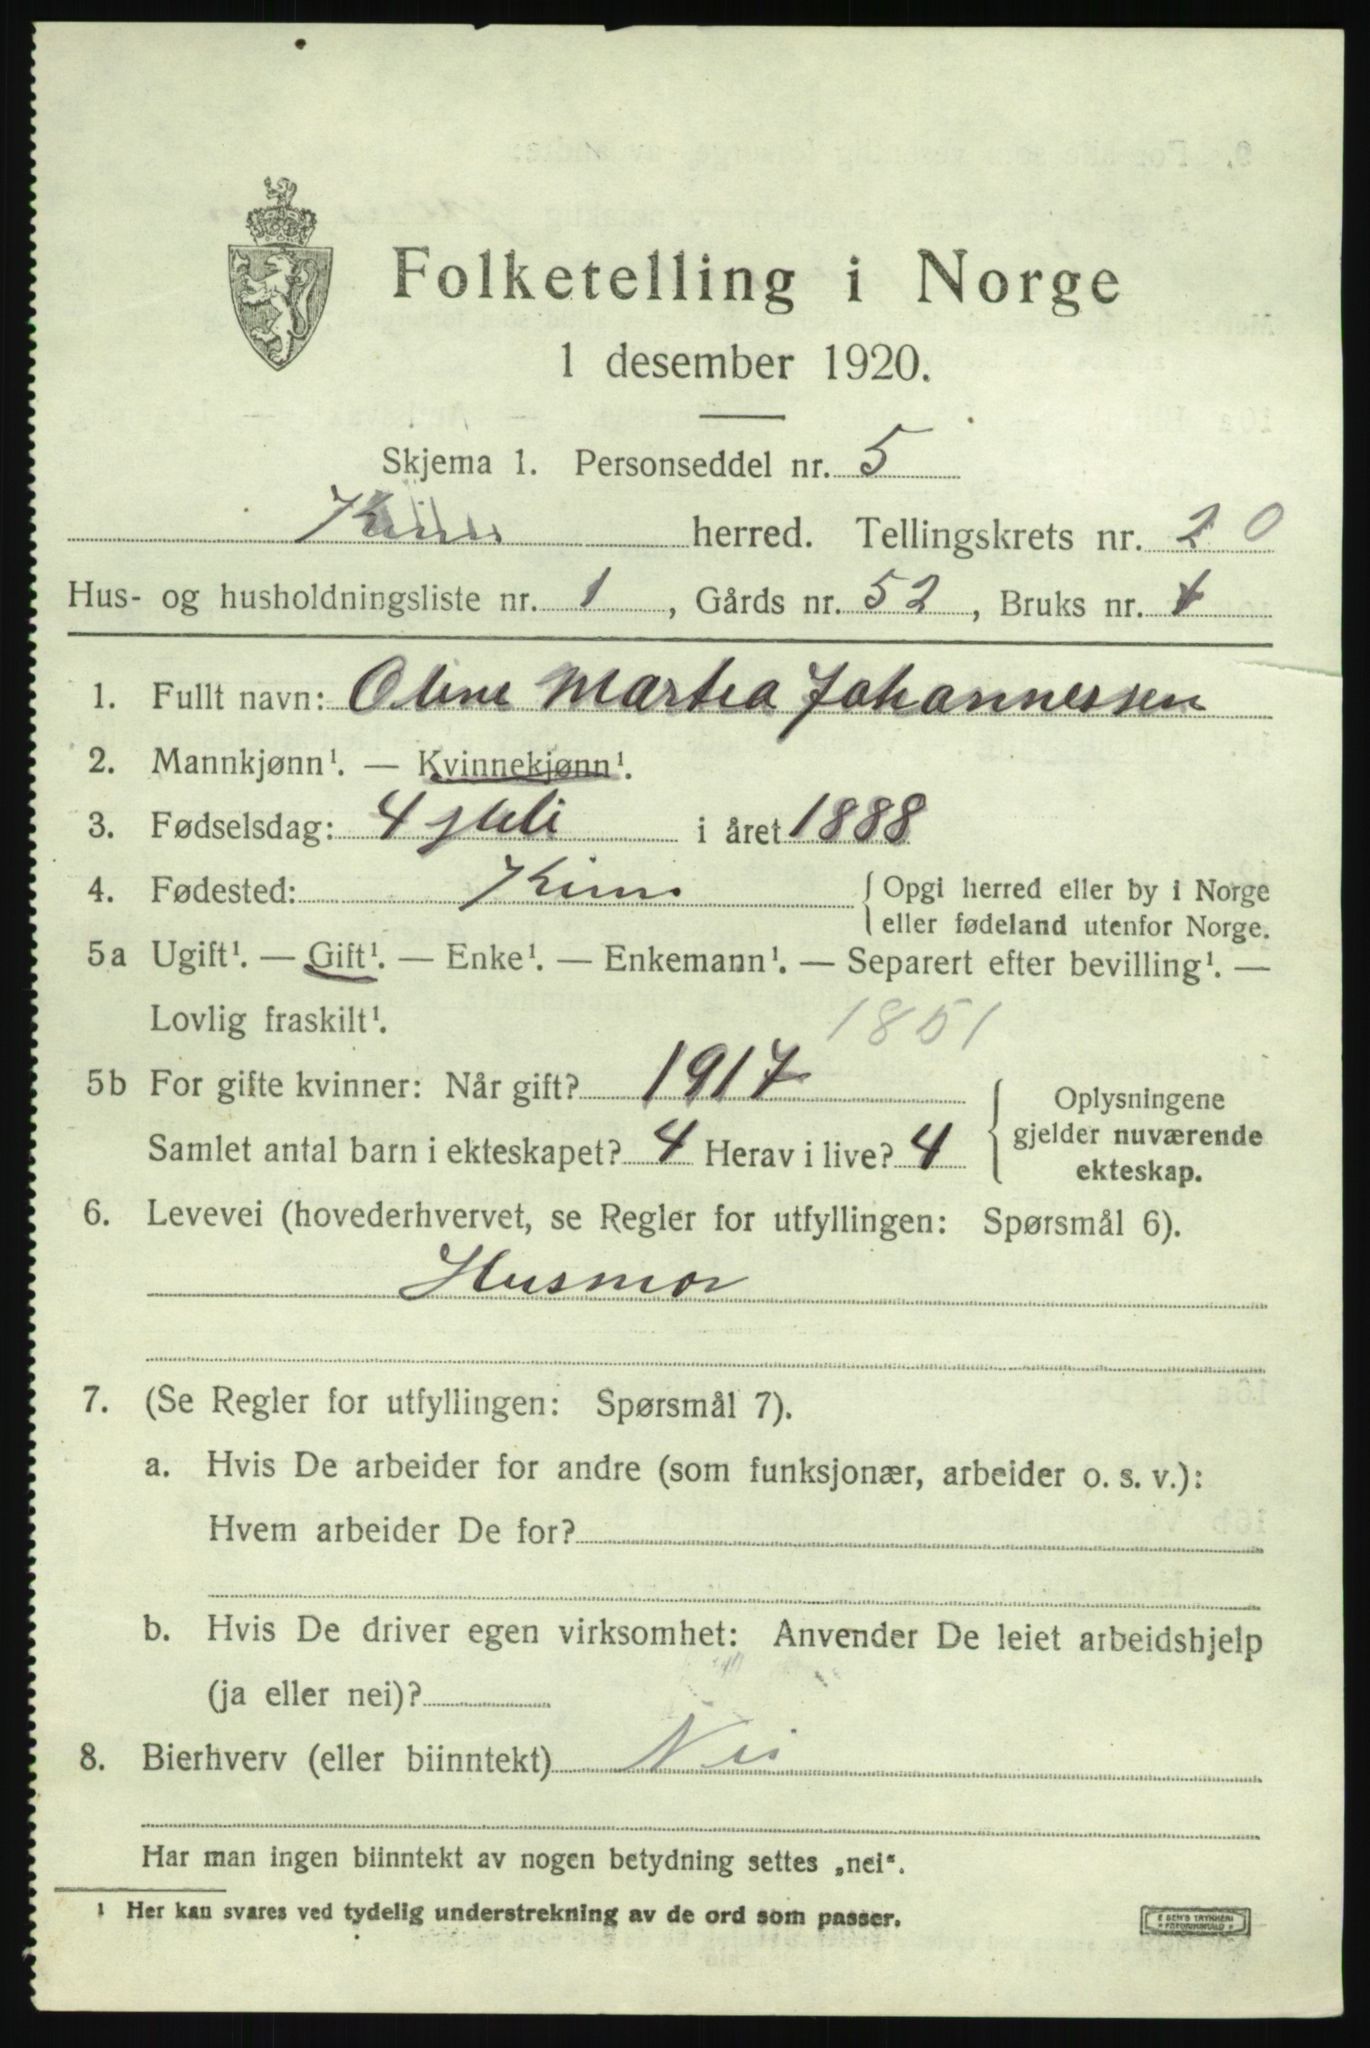 Folketelling i Norge
1 desember 1920.
Skjema 1. Personseddel nr. 5
Kinn herred. Tellingskrets nr. 20
Hus- og husholdningsliste nr. 1, Gårds nr. 52, Bruks nr.
1. Fullt navn: Oline Martea Johannessen
2. Mannkjønn¹. — Kvinnekjønn¹.
3. Fødselsdag: 4 juli i året 1888
4. Fødested: Kinn { Opgi herred eller by i Norge
eller fødeland utenfor Norge.
5a Ugift¹. — Gift¹. — Enke¹. — Enkemann¹. — Separert efter bevilling¹. —
Lovlig fraskilt¹. 1851
5b For gifte kvinner: Når gift? 1917
Samlet antal barn i ekteskapet? 4 Herav i live? 4
{ Oplysningene
gjelder nuværende
ekteskap.
6. Levevei (hovederhvervet, se Regler for utfyllingen: Spørsmål 6).
Husmor
7. (Se Regler for utfyllingen: Spørsmål 7).
a. Hvis De arbeider for andre (som funksjonær, arbeider o. s. v.):
Hvem arbeider De for?
b. Hvis De driver egen virksomhet: Anvender De leiet arbeidshjelp
(ja eller nei)?
8. Bierhverv (eller biinntekt) Nei
Har man ingen biinntekt av nogen betydning settes „nei“.
¹ Her kan svares ved tydelig understrekning av de ord som passer.